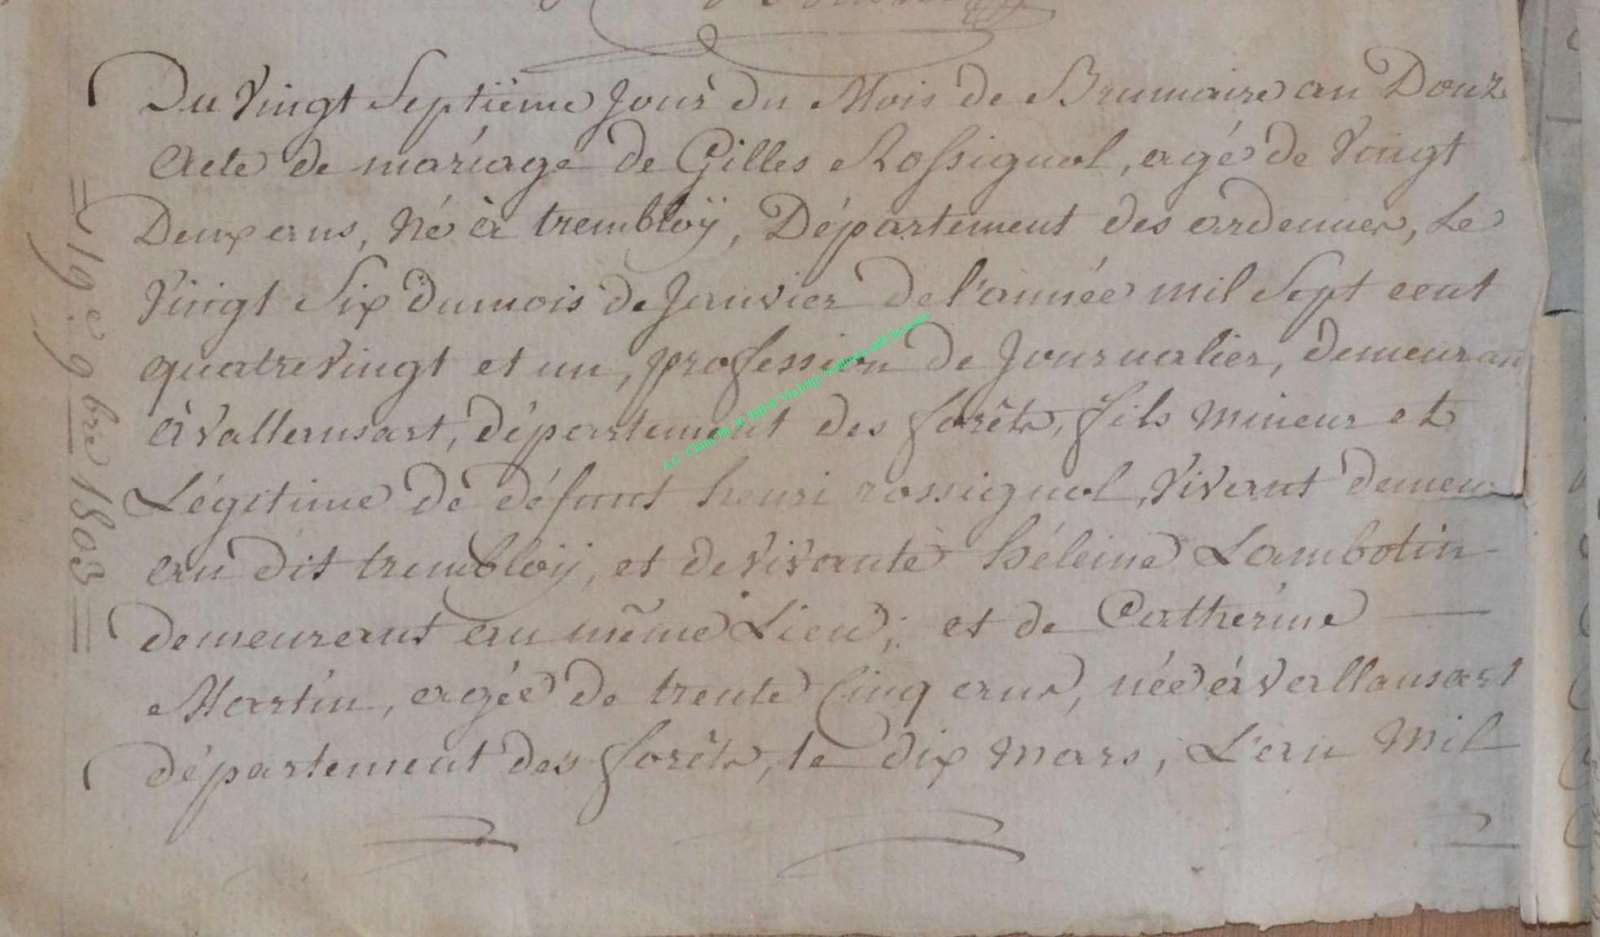 Du Vingt Septiéme Jour du Mois de Brumaire an Douz
Acte de mariage de Gilles Rossignol, agé de Vingt
Deux ans, Né à trembloÿ, Département des ardennes, Le
Vingt Six du mois de Janvier de l'année mil Sept cent
quatre Vingt et un, profession de Journalier, demeuran
à Vallansart, département des forêts, fils Mineur et
Légitime de défunt henri rossignol, Vivant demeur
au dit trembloÿ, et de Vivante héleine Lambotin
demeurant au même Lieu; et de Catherine
Martin, agée de trente Cinq ans, née à Vallansart
département des forêts, le dix Mars, L'an Mil
19 e 9bre 1803